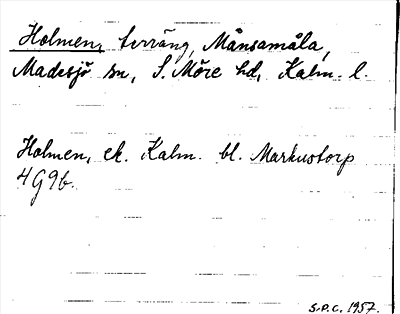 Holmen, terräng, Månsamåla,
Madesjö sn, S. Möre hd, Kalm. l.
Holmen, ek. Kalm. bl. Markustorp
4G9b.
S.P.C. 1957.